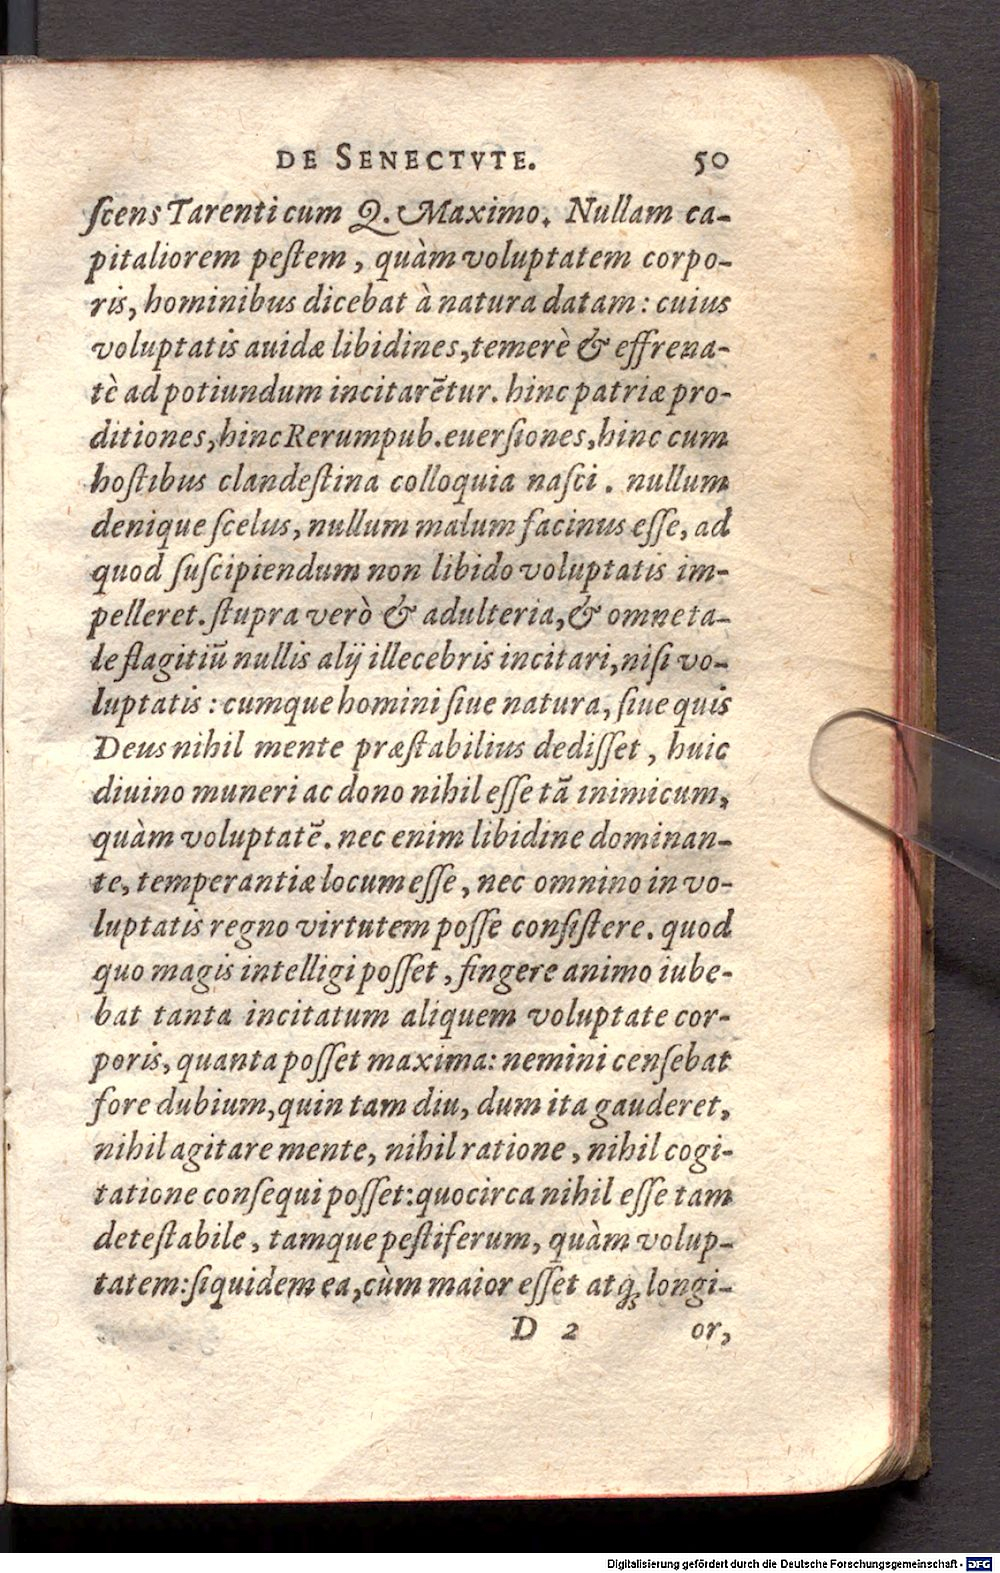 DE SENECTVTE. 50
ſcens Tarenti cum Q. Maximo. Nullam ca-
pitaliorem peſtem, quàm voluptatem corpo-
ris, hominibus dicebat à natura datam: cuius
voluptatis auidæ libidines, temerè & effrena-
tè ad potiundum incitarẽtur. hinc patriæ pro-
ditiones, hinc Rerumpub. euerſiones, hinc cum
hoſtibus clandeſtina colloquia naſci. nullum
denique ſcelus, nullum malum facinus eſſe, ad
quod ſuſcipiendum non libido voluptatis im-
pelleret. ſtupra verò & adulteria, & omne ta-
le flagitiũ nullis alij illecebris incitari, niſi vo-
luptatis: cumque homini ſiue natura, ſiue quis
Deus nihil mente præſtabilius dediſſet, huic
diuino muneri ac dono nihil eſſe tã inimicum,
quàm voluptatẽ. nec enim libidine dominan-
te, temperantiæ locum eſſe, nec omnino in vo-
luptatis regno virtutem poſſe conſiſtere. quod
quo magis intelligi poſſet, fingere animo iube-
bat tanta incitatum aliquem voluptate cor-
poris, quanta poſſet maxima: nemini cenſebat
fore dubium, quin tam diu, dum ita gauderet,
nihil agitare mente, nihil ratione, nihil cogi-
tatione conſequi poſſet: quocirca nihil eſſe tam
deteſtabile, tamque peſtiferum, quàm volup-
tatem: ſiquidem ea, cùm maior eſſet atq; longi-
D 2 or,
Digitalisierung gefördert durch die Deutsche Forschungsgemeinschaft - DFG